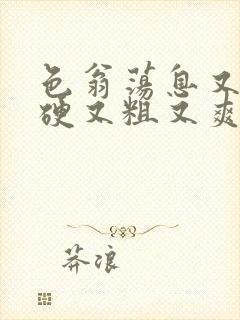 色翁荡息又
硬又粗又爽
莽浪